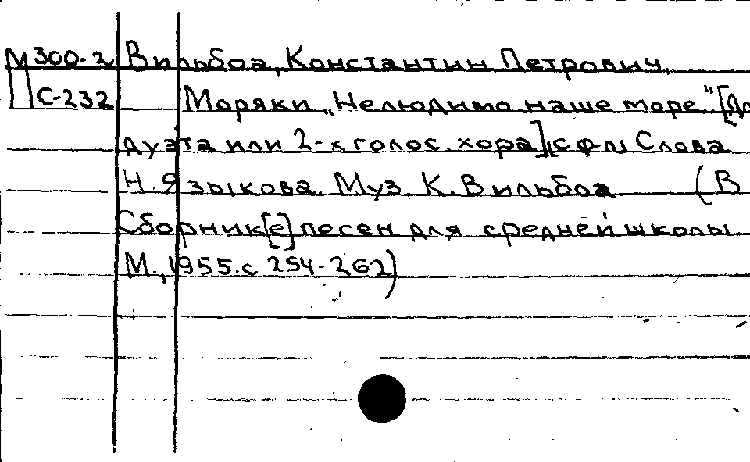 М300-2 Вильбоа, Константин Петрович
П С-232 Моряки „Нелюдимо наше море." [Дл
дуэта или 2-х голос. хора] с ф-п Слова
Н. Языкова. Муз. К. Вильбоа (В
Сборник[е] песен для средней школы
М., 1955. с 254-262)